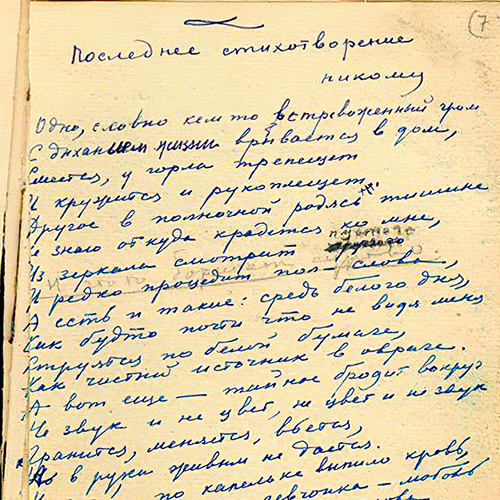 7
Последнее стихотворение
никому
Одно, словно кем то встревоженный гром
С дыханием жизни врывается в дом,
Смеется, у горла трепещет
И кружится и рукоплещет.
Другое в полночной родясь тишине
Не знаю откуда крадется ко мне,
пустого
Из зеркала смотрит другого
И что то бормочет сурово
И редко процедит пол-слова,
А есть и такие: средь белого дня,
Как будто почти что не видя меня
Струятся по белой бумаге,
Как чистый источник в овраге.
А вот еще — тайное бродит вокруг
Не звук и не цвет, не цвет и не звук
Гранится, меняется, вьется,
Но в руки живым не дается.
по капельке выпило кровь,
девчонка – любовь